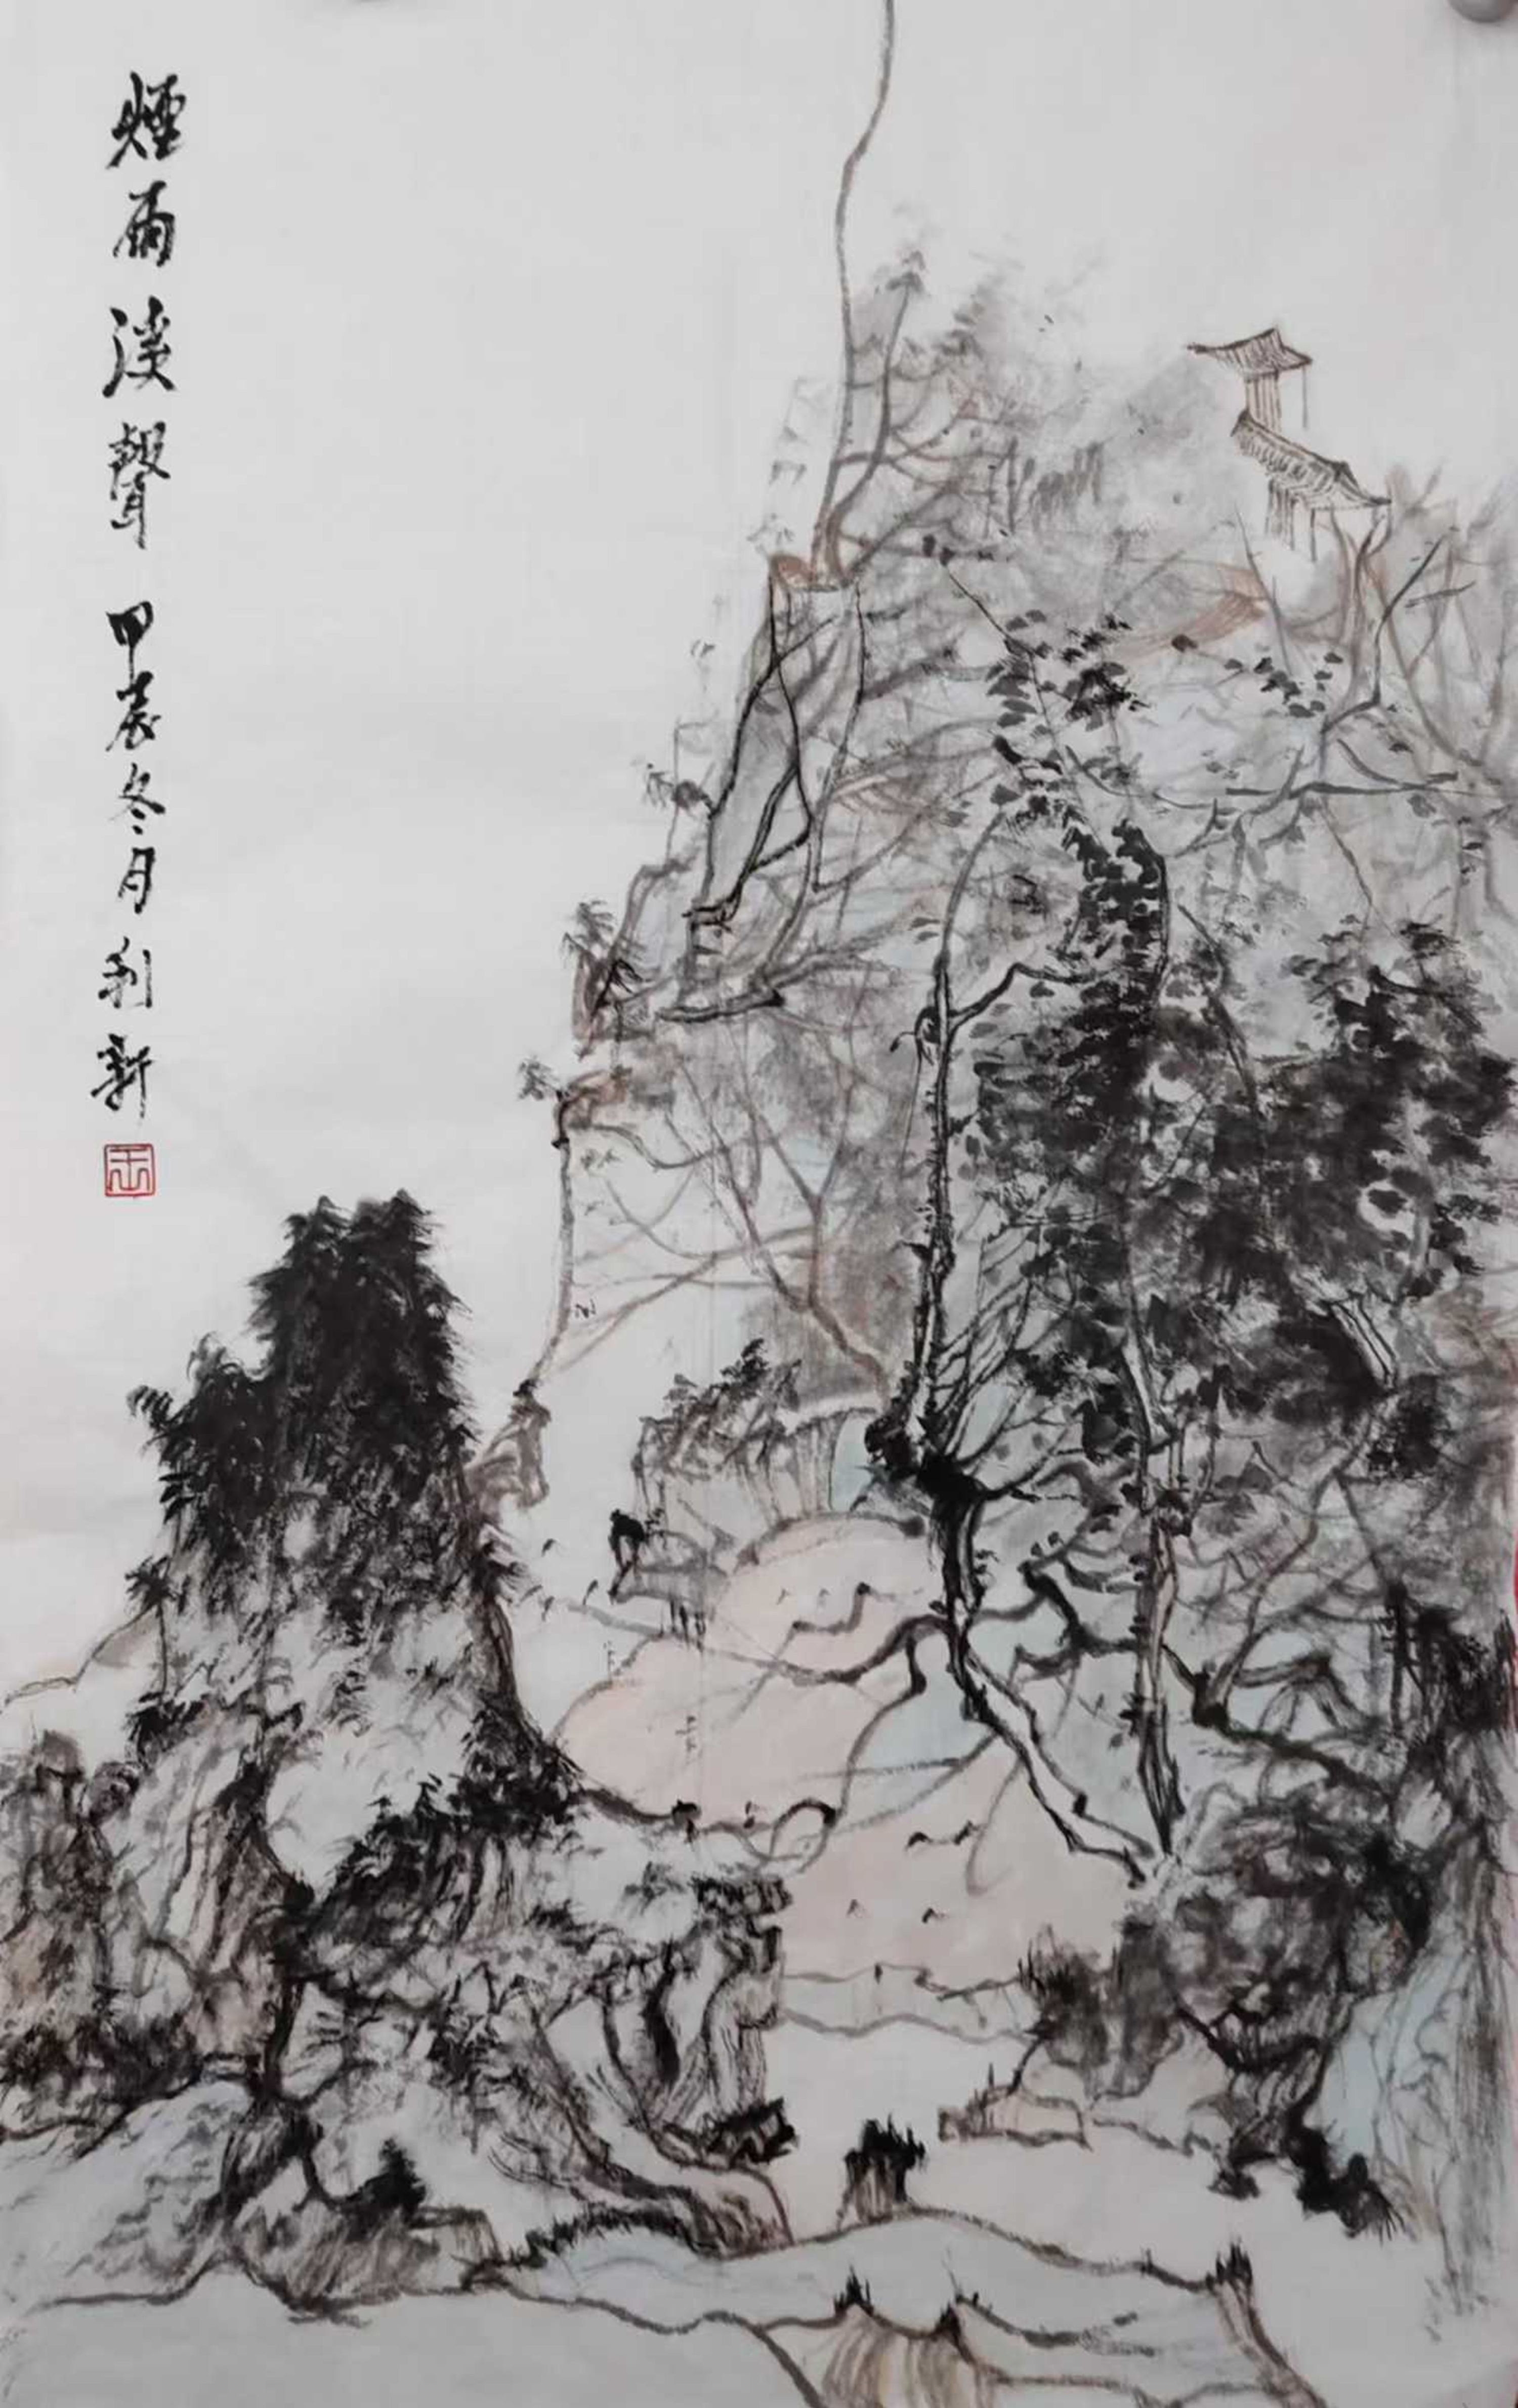 煙雨溪聲 甲辰冬月 利新
王